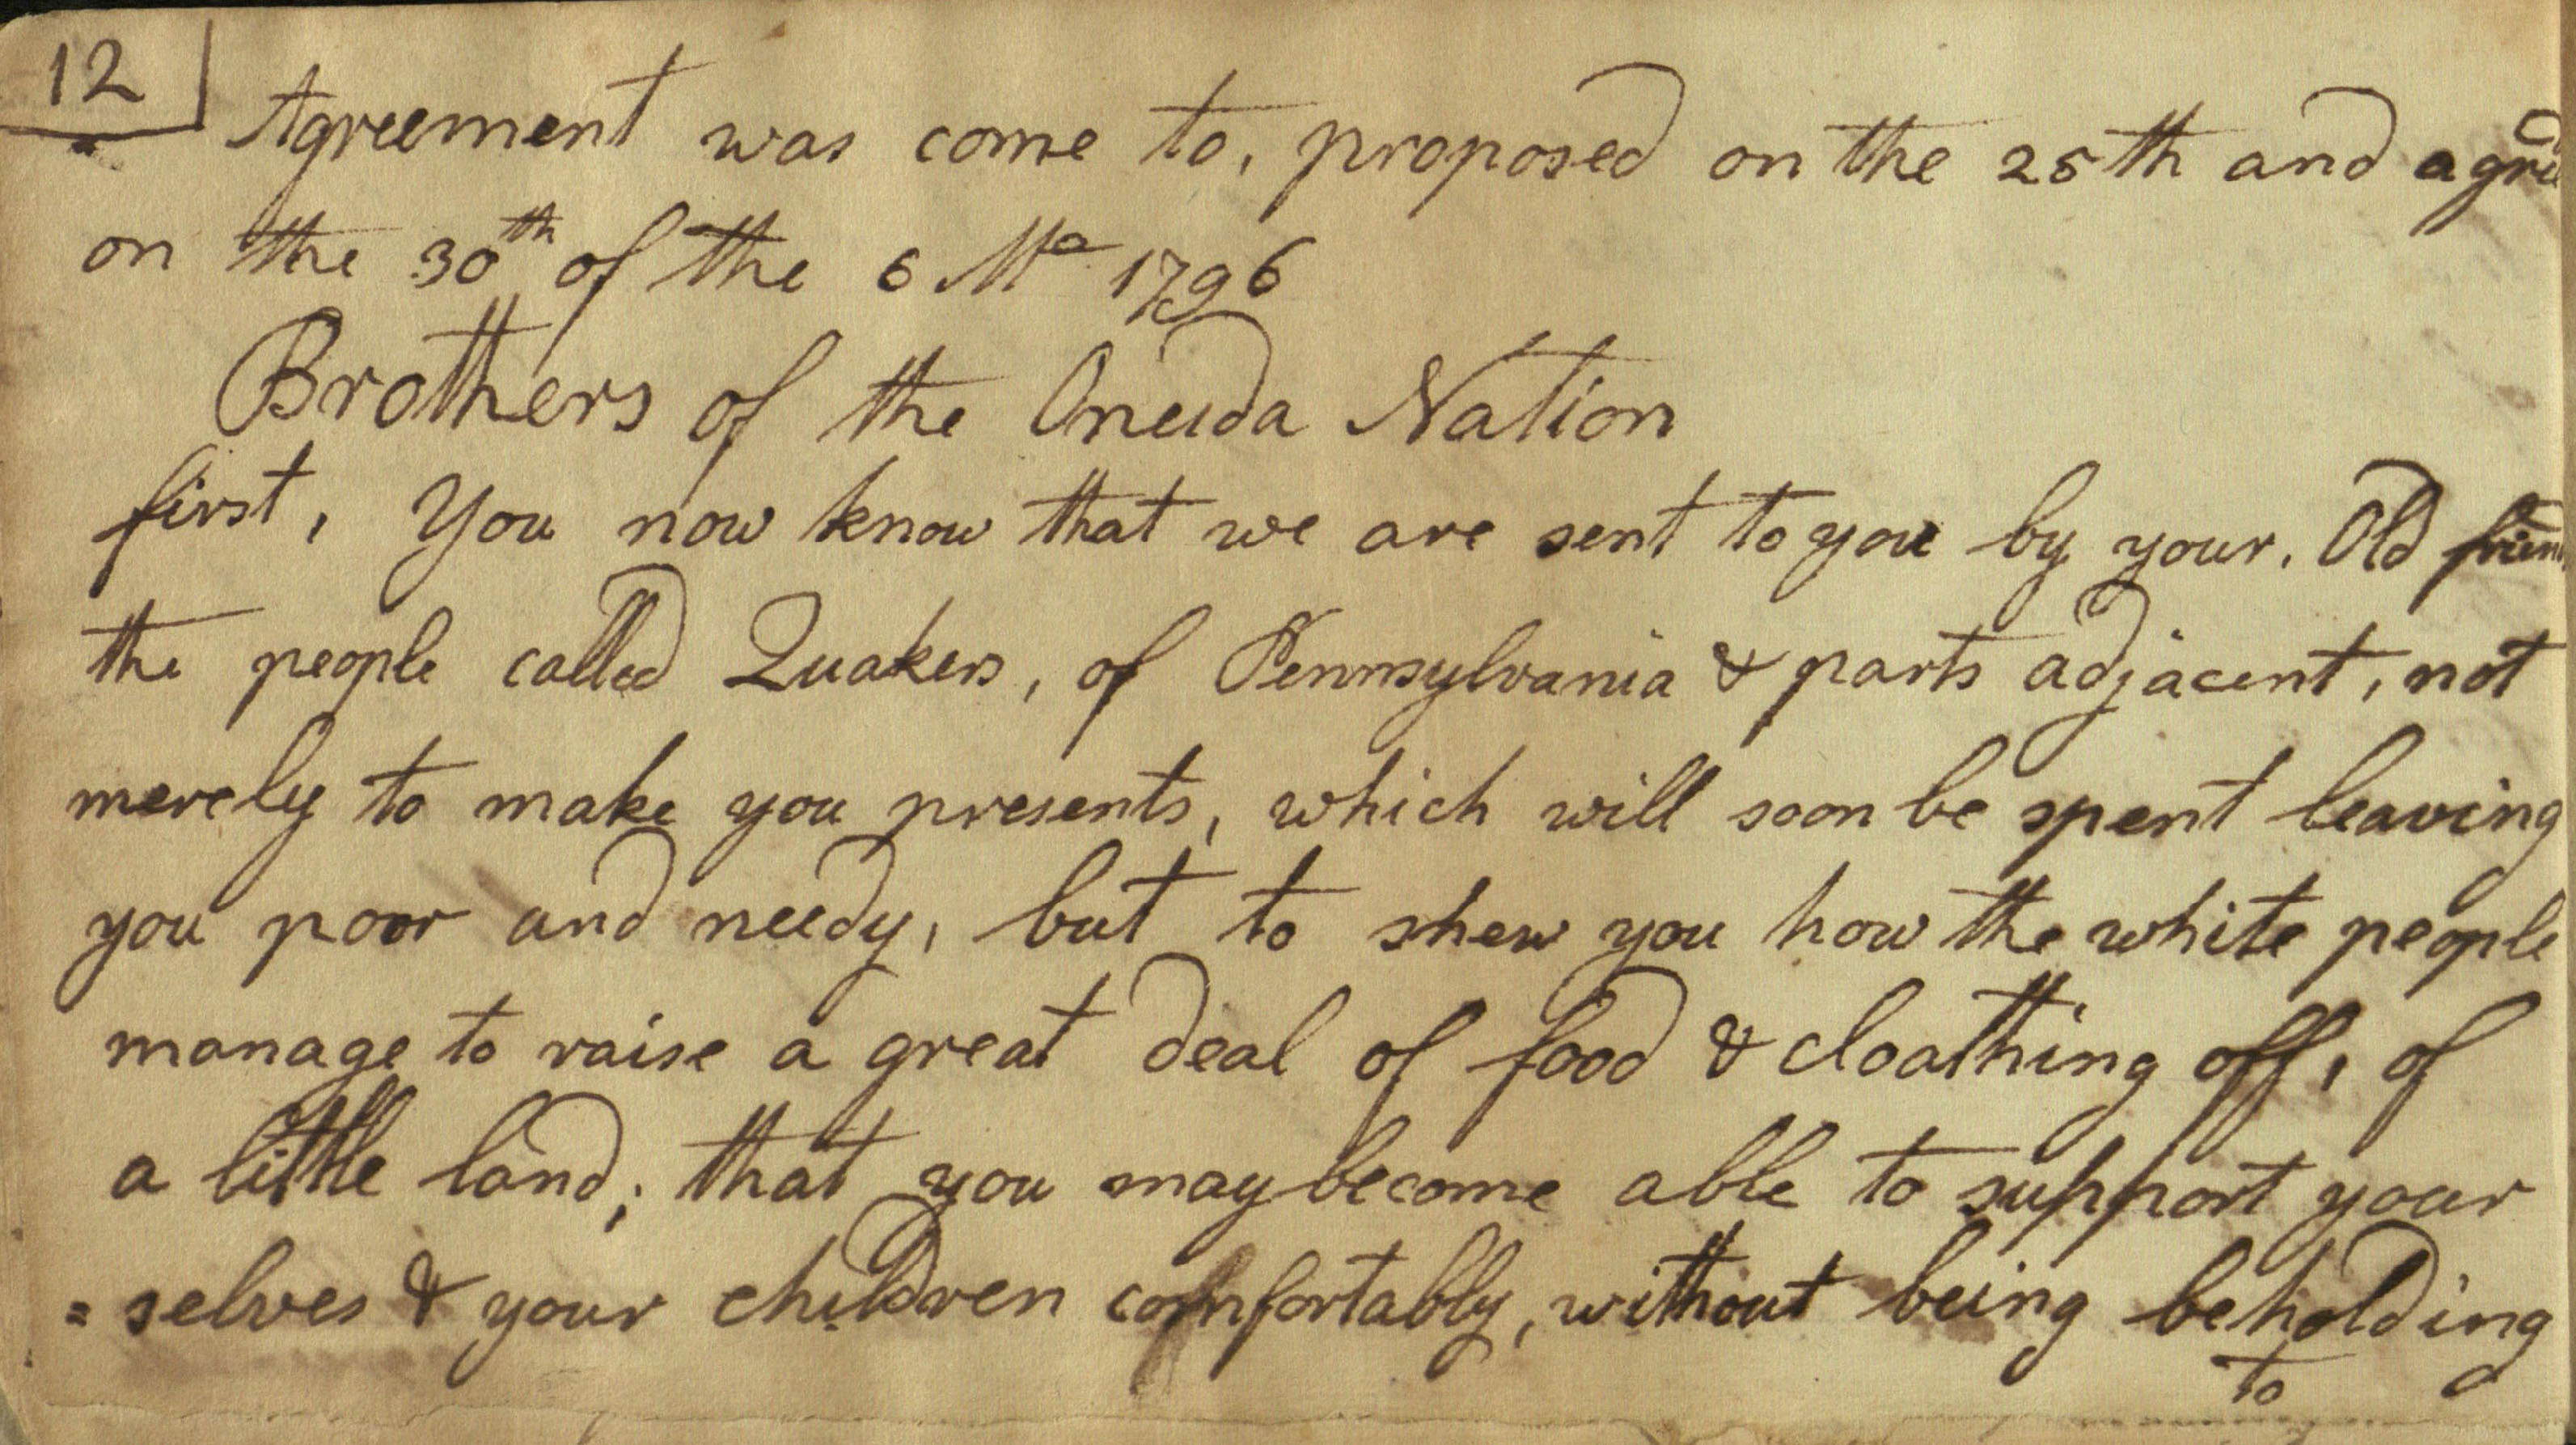 12
Agreement was come to, proposed on the 25th and agreed
on the 30th of the 6 Mo 1796
Brothers of the Oneida Nation
first, You now know that we are sent to you by your, Old frien
the people called Quakers, of Pennsylvania & parts adjacent, not
merely to make you presents, which will soon be spent leaving
you poor and needy, but to shew you how the white people
manage to raise a great deal of food & cloathing off, of
a little land; that you may become able to support your
=selves & your children comfortably, without being beholding
to